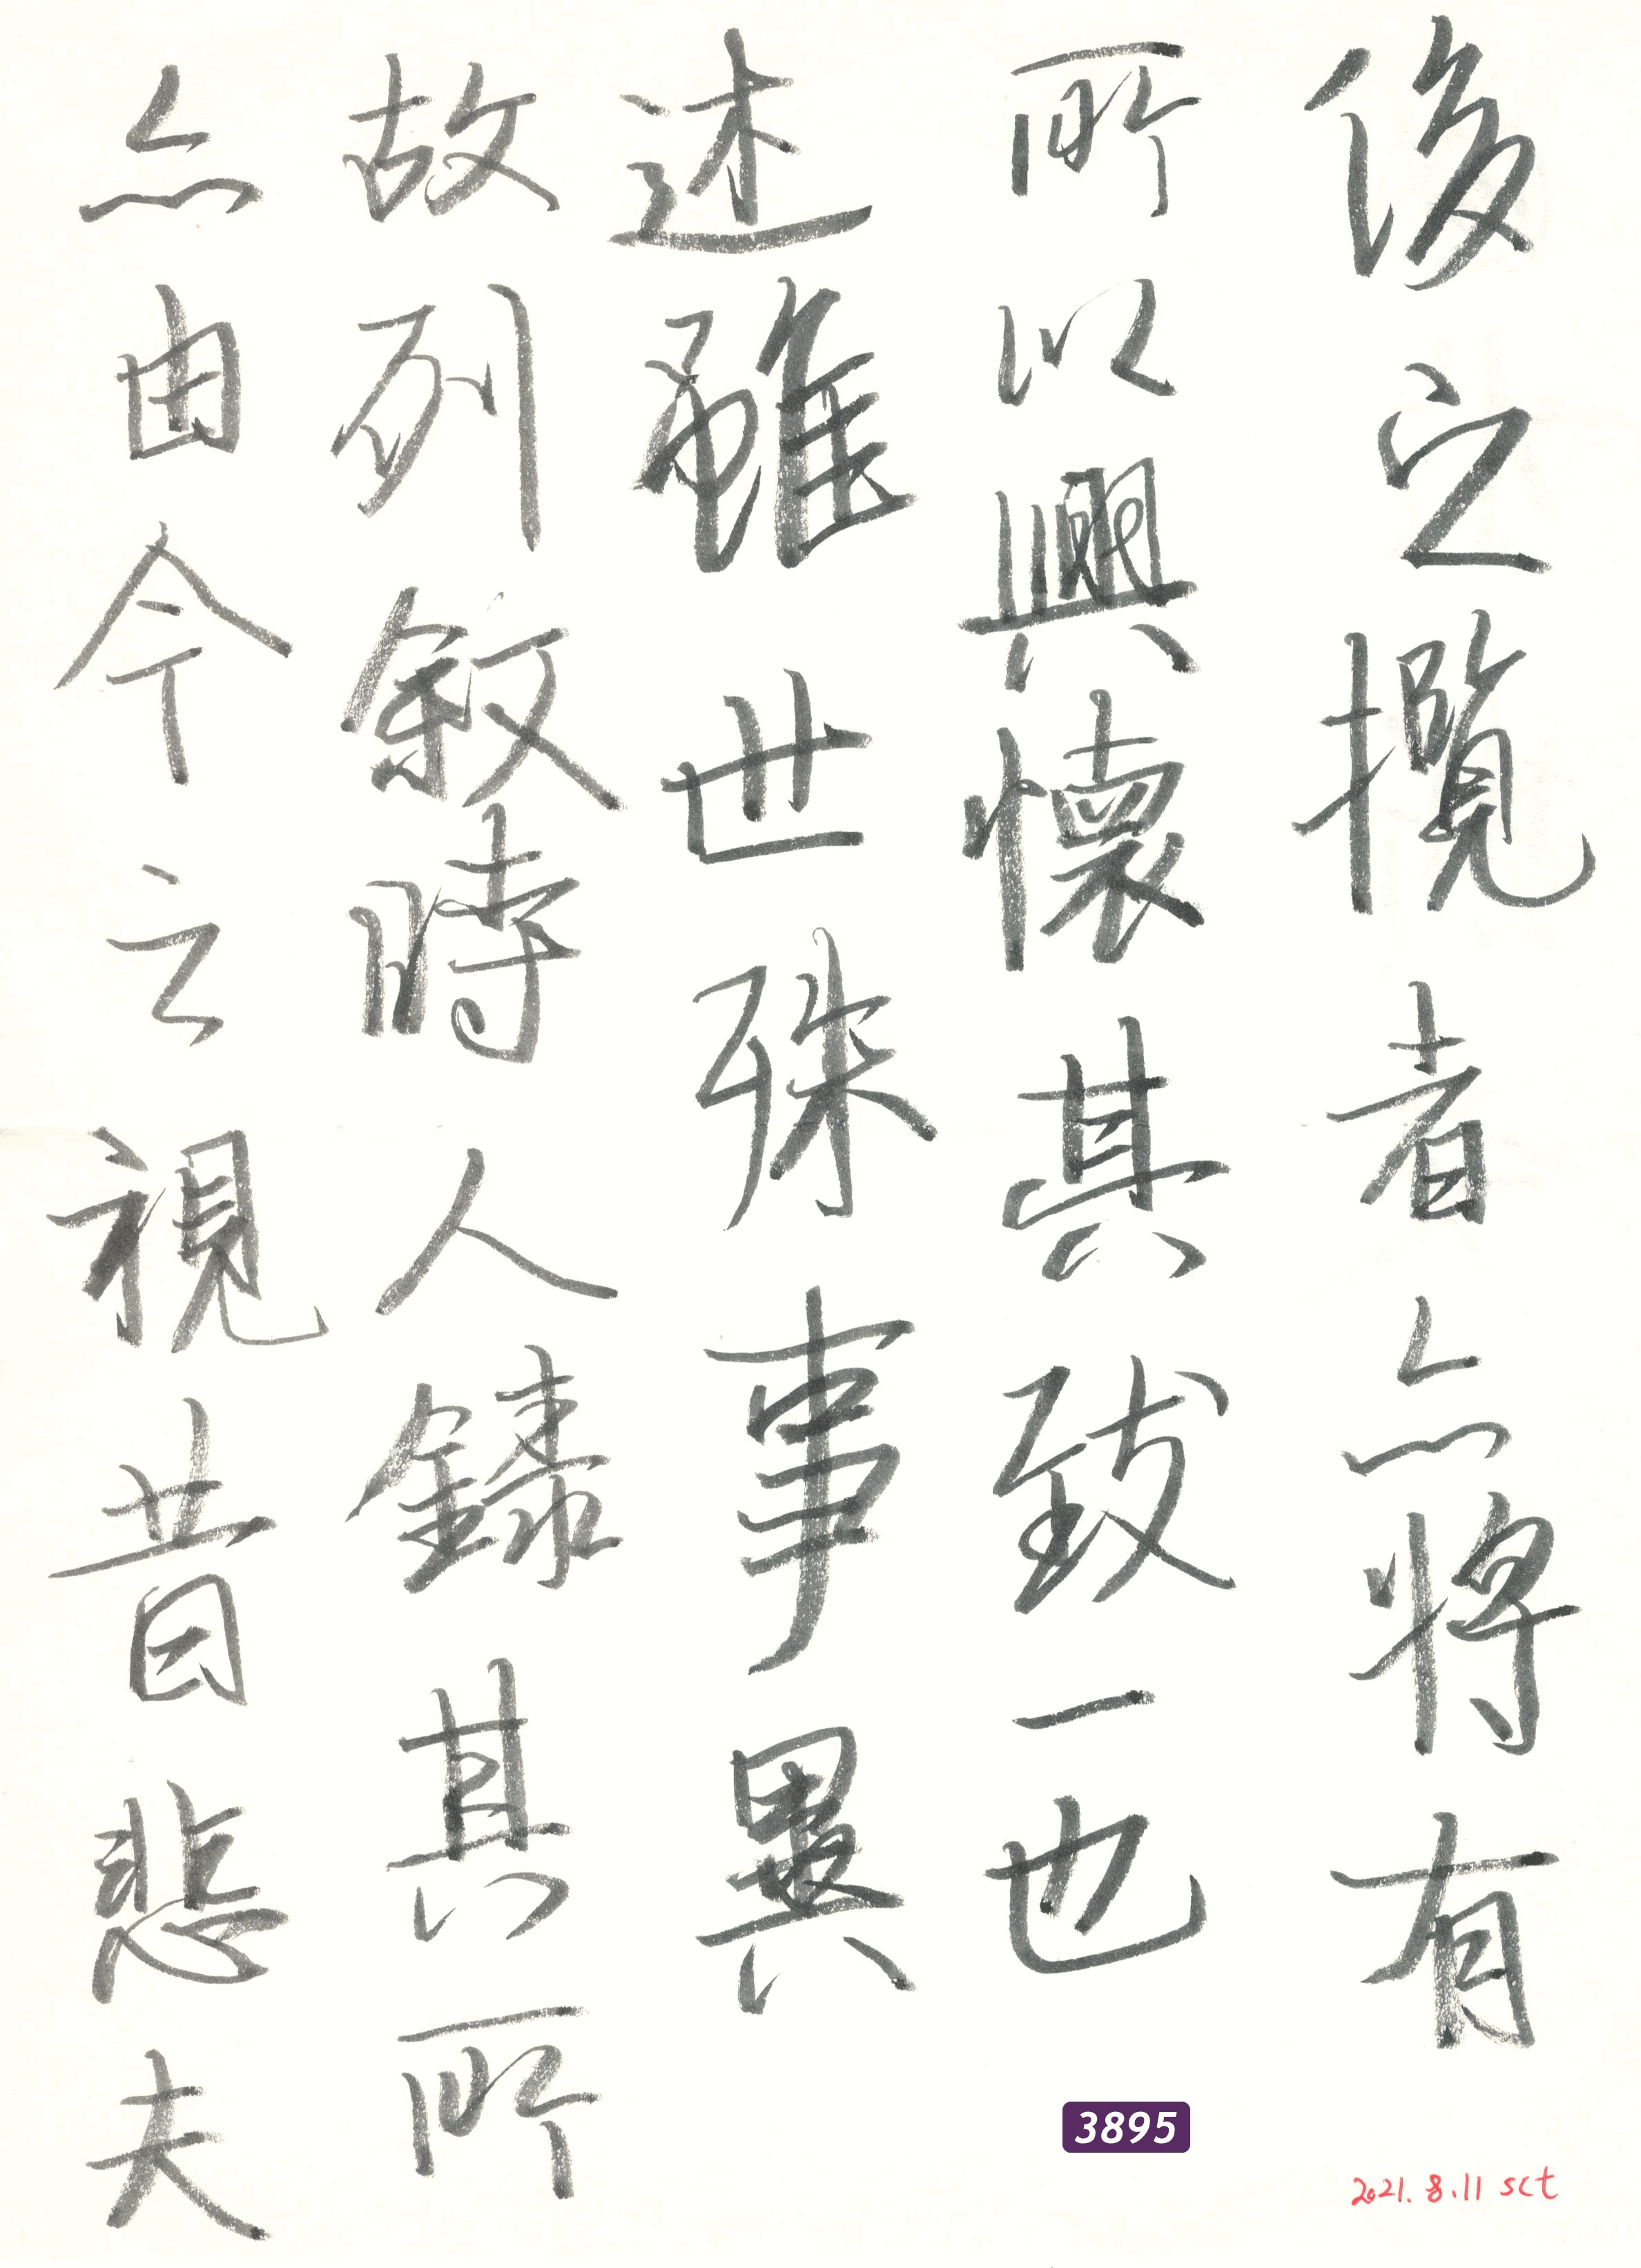 後之攬者亦將有
所以興懷其致一也
述雖世殊事異
故列敘時人錄其所
亦由今之視昔悲夫
3895
2021.8.11 sct